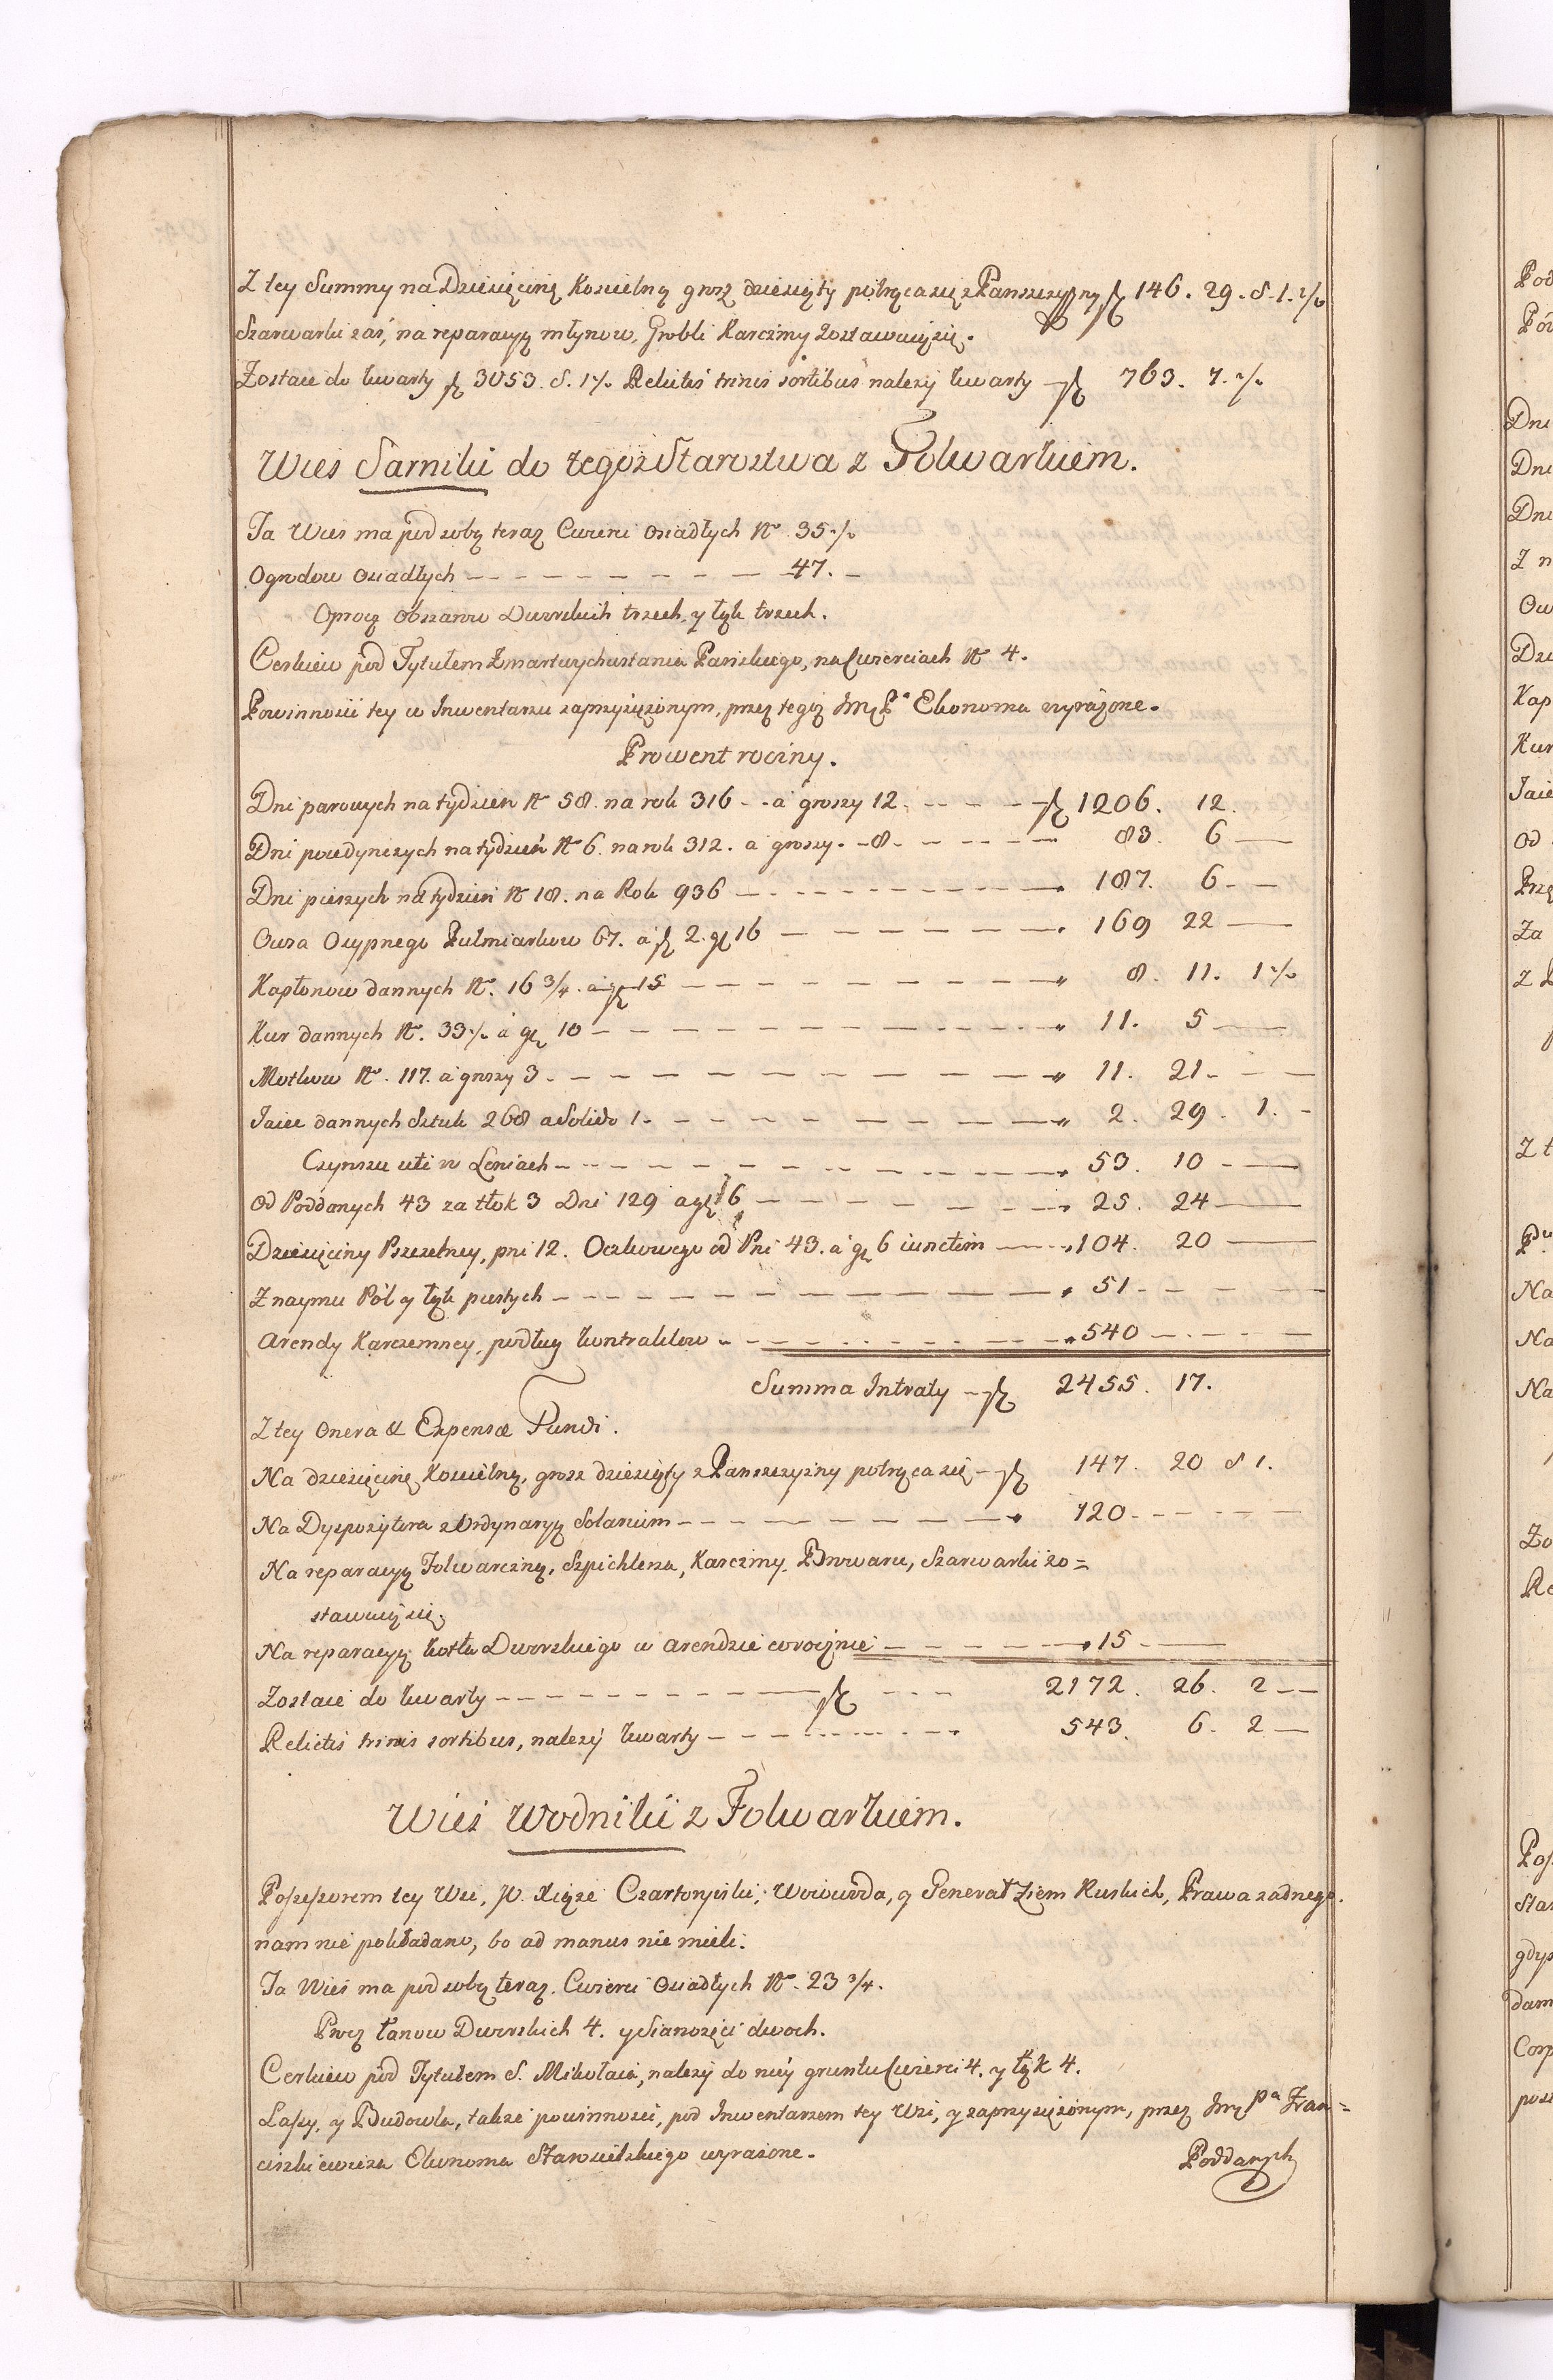 Z tey Summy na Dziesięcinę Koscielną grosz dziesiąty potrąca się z Panszczyzny fl 146. 29. S. 1. ½
Szarwarki zaś, na reparacyą młynow, Grobli Karczmy zostawuią się.
Zostaie do kwarty fl 3053. S. 1½ Relictis trinis sortibus należy kwarty — fl 763. 7. ½
Wies Sarniki do tegoż Starostwa z Folwarkiem.
Ta Wies ma pod sobą teraz Cwierci osiadłych N° 35½
Ogrodow osiadłych — 47.
Oprocz obszarow Dworskich trzech, y łąk trzech.
Cerkiew pod Tytułem Zmartwychwstania Pańskiego, na Cwierciach N° 4.
Powinności tey w Inwentarzu zaprzysiężonym, przez tegoż Jmć Pa Ekonoma wyrażone.
Prowent roczny.
Dni parowych na tydzień N° 58. na rok 316 - - a groszy 12. — fl 1206. 12.
Dni poiedynczych na tydzień N° 6. na rok 312. a groszy. - 8. — 83. 6 —
Dni pieszych na tydzień N° 18. na Rok 936 — 187. 6 - —
Owsa Osypnego Pułmiarkow 67. a fl 2. gr 16 — 169 22 —
Kapłonow dannych N°. 16 3/4. a gr 15 — 8. 11. 1½
Kur dannych N°. 33½ a gr 10 — 11. 5 —
Motkow N°. 117. a groszy 3 — 11. 21 - —
Jaiec dannych Sztuk 268 a Solido 1. — 2. 29. 1. -
Czynszu uti w Leniach — 53. 10 —
Od Poddanych 43 za tłok 3 Dni 129 a gr 6 — 25. 24 —
Dziesięciny Pszczelney, pni 12. Oczkowego od Pni 43. a gr 6 iunctim — 104. 20 —
Z naymu Pól y łąk pustych — 51 - —
Arendy Karczemney, podług kontraktow — 540 —
Summa Intraty — fl 2455. 17.
Z tey Onera & Expensæ Fundi.
Na dziesięcinę Koscielną, grosz dziesiąty z Panszczyzny potrąca się — fl 147. 20 S 1.
Na Dyspozytora z Ordynaryą Solarium — 120 - —
Na reparacyą Folwarczną, Szpichlerza, Karczmy, Browaru, Szarwarki zo=
stawuią się.
Na reparacyą kotła Dworskiego w arendzie corocznie — 15 —
Zostaie do kwarty — fl — 2172. 26. 2 —
Relictis trinis sortibus, należy kwarty — 543. 6. 2 —
Wieś Wodniki z Folwarkiem.
Possessorem tey Wsi, JO. Xiąże Czartoryiski, Woiewoda, y Generał Ziem Ruskich, Prawa żadnego.
nam nie pokładano, bo ad manus nie mieli.
Ta Wieś ma pod sobą teraz Cwierci Osiadłych N°. 23 3/4.
Procz Łanow Dworskich 4. y Sianożęci dwoch.
Cerkiew pod Tytułem S. Mikołaia, należy do niey gruntu Cwierci 4. y łąk 4.
Lassy, y Budowla, także powinności, pod Inwentarzem tey Wsi, y zaprzysiężonym, przez Jmć Pa Fran=
ciszkiewicza Ekonoma Starościńskiego wyrażone.
Poddanych